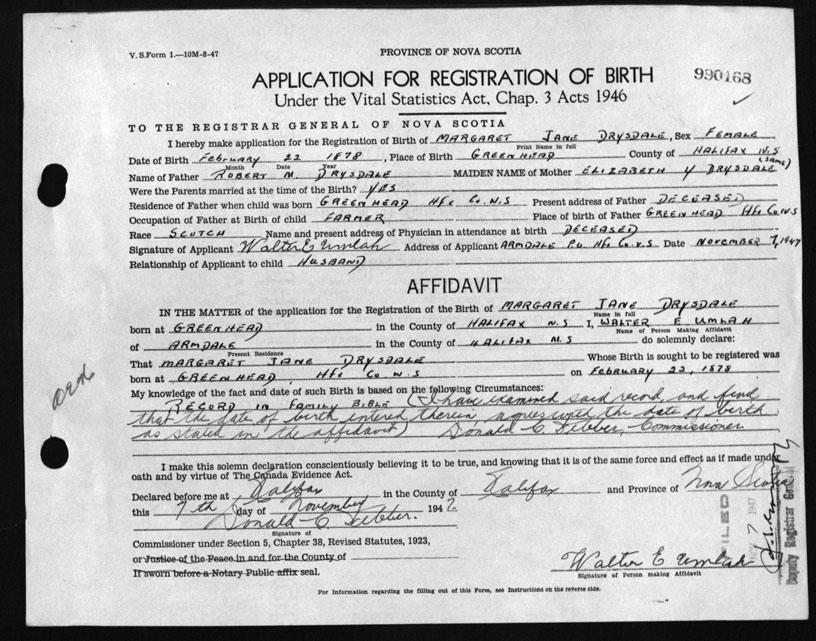 V. S. Form 1.—10M-8-47
PROVINCE OF NOVA SCOTIA
990168
APPLICATION FOR REGISTRATION OF BIRTH
Under the Vital Statistics Act, Chap. 3 Acts 1946
TO THE REGISTRAR GENERAL OF NOVA SCOTIA
I hereby make application for the Registration of Birth of MARGARET JANE DRYSDALE, Sex FEMALE
Print Name in full
Date of Birth February 22 1878, Place of Birth GREENHEAD County of HALIFAX N.S
Month Date Year
(SAME)
Name of Father ROBERT M. DRYSDALE MAIDEN NAME of Mother ELIZABETH Y DRYSDALE
Were the Parents married at the time of Birth? YES
Residence of Father when child was born GREEN HEAD Hfx Co. N.S Present address of Father DECEASED
Occupation of Father at Birth of child FARMER Place of birth of Father GREEN HEAD Hfx Co N.S
Race SCOTCH Name and present address of Physician in attendance at birth DECEASED
Signature of Applicant Walter E Umlah Address of Applicant ARMDALE P.O. Hfx Co. N.S Date NOVEMBER 7, 1947
Relationship of Applicant to child HUSBAND
AFFIDAVIT
IN THE MATTER of the application for the Registration of the Birth of MARGARET JANE DRYSDALE
Name in full
born at GREENHEAD in the County of HALIFAX N.S I, WALTER E UMLAH
Name of Person Making Affidavit
of ARMDALE in the County of HALIFAX N.S do solemnly declare:
Present Residence
That MARGARET JANE DRYSDALE Whose Birth is sought to be registered was
born at GREEN HEAD, Hfx Co N.S on FEBRUARY 22, 1878
My knowledge of the fact and date of such Birth is based on the following Circumstances:
RECORD IN FAMILY BIBLE (I have examined said record, and find
that the date of birth entered therein, agrees with the date of birth
as stated in the affidavit) Donald C Commissioner
I make this solemn declaration conscientiously believing it to be true, and knowing that it is of the same force and effect as if made under
oath and by virtue of The Canada Evidence Act.
Declared before me at Halifax in the County of Halifax and Province of Nova Scotia
this 7th day of November 1947
Donald C.
Signature of
Commissioner under Section 5, Chapter 38, Revised Statutes, 1923,
or Justice of the Peace in and for the County of
If sworn before a Notary Public affix seal.
Walter E Umlah
Signature of Person making Affidavit
For Information regarding the filling out of this Form, see Instructions on the reverse side.
1947
Deputy Registrar General